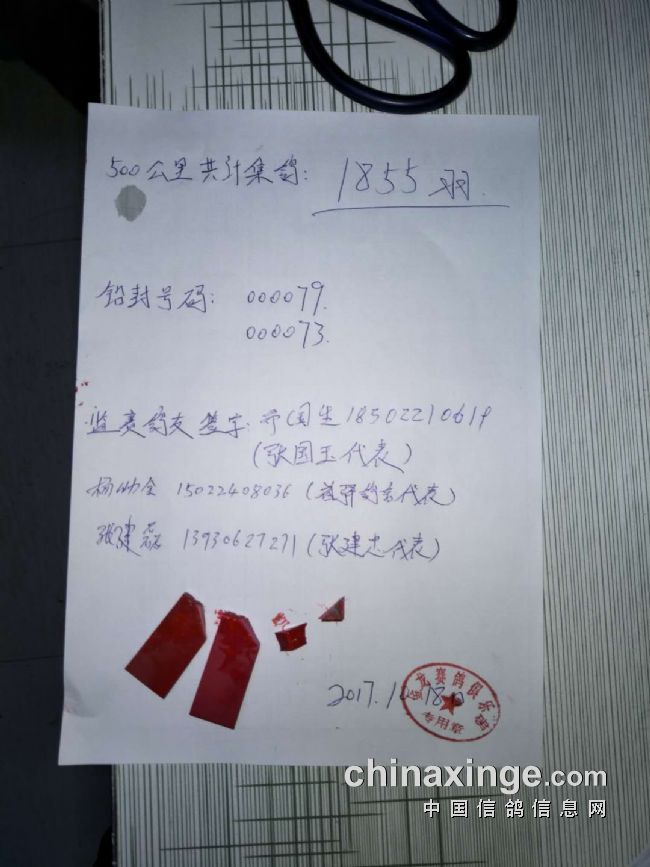 500公里共计集鸽: 1855羽.
铅封号码: 000079.
000073.
监赛鸽友签字: 国生 18502210619
(张国玉代表)
杨 全 15022408036 ( 鸽舍代表)
张建磊 13930627271 (张建忠代表)
2017.10.18日
赛鸽俱乐部
专用章
chinaxinge.com
中国信鸽信息网